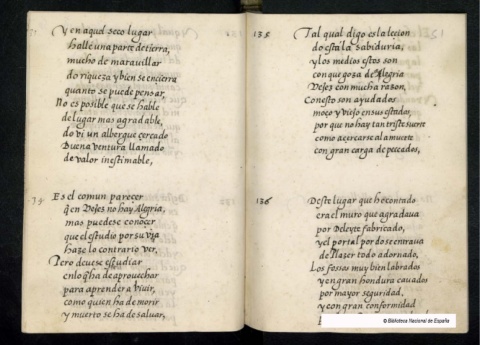 Y en aquel seco lugar
halle una parte de tierra,
mucho de maravillar
do riqueza y bien se encierra
quanto se puede pensar,
No es posible que se hable
de lugar mas agradable,
do vi un albergue cercado
Buena ventura llamado
de valor inestimable,
Es el comun parecer
q̃ en Dejes no hay Alegria,
mas puedese conocer
que el estudio por su via
haze lo contrario ver,
Pero devese estudiar
en lo q̃ ha de aprovechar
para aprender a vivir,
como quien ha de morir
y muerto se ha de salvar,
135
Tal qual digo es la lecion
do esta la sabiduria,
y los medios estos son
con que goza de Alegria
Dejes con mucha razon,
Con esto son ayudados
moço y viejo en sus estados,
por que no hay tan triste suerte
como acercarse al a muerte
con gran carga de peccados,
136
Deste lugar que he contado
era el muro que agradava
por Deleyte fabricado,
y el portal por do se entrava
de Plazer todo adornado,
Los fossos muy bien labrados
y en gran hondura cavados
por mayor seguridad,
y con gran conformidad
© Biblioteca Nacional de España